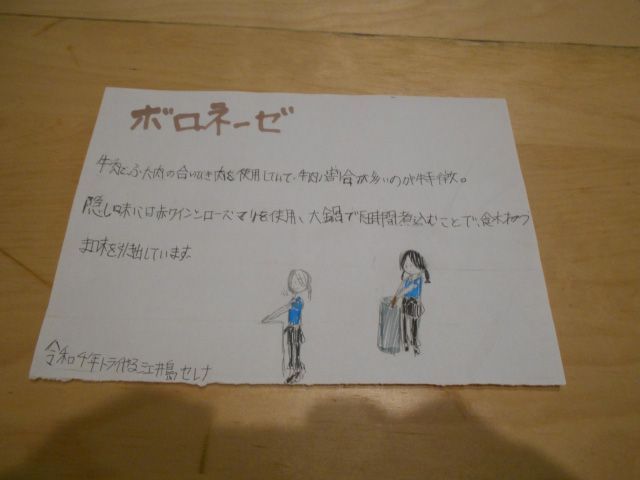 ボロネーゼ
牛肉とぶた肉の合いびき肉を使用していて、牛肉の割合が多いのが特徴。
隠し味には赤ワインとローズマリーを使用し、大鍋で長時間煮込むことで、食材のう
ま味を引き出しています。
令和4年トライやる 江井島 セレナ